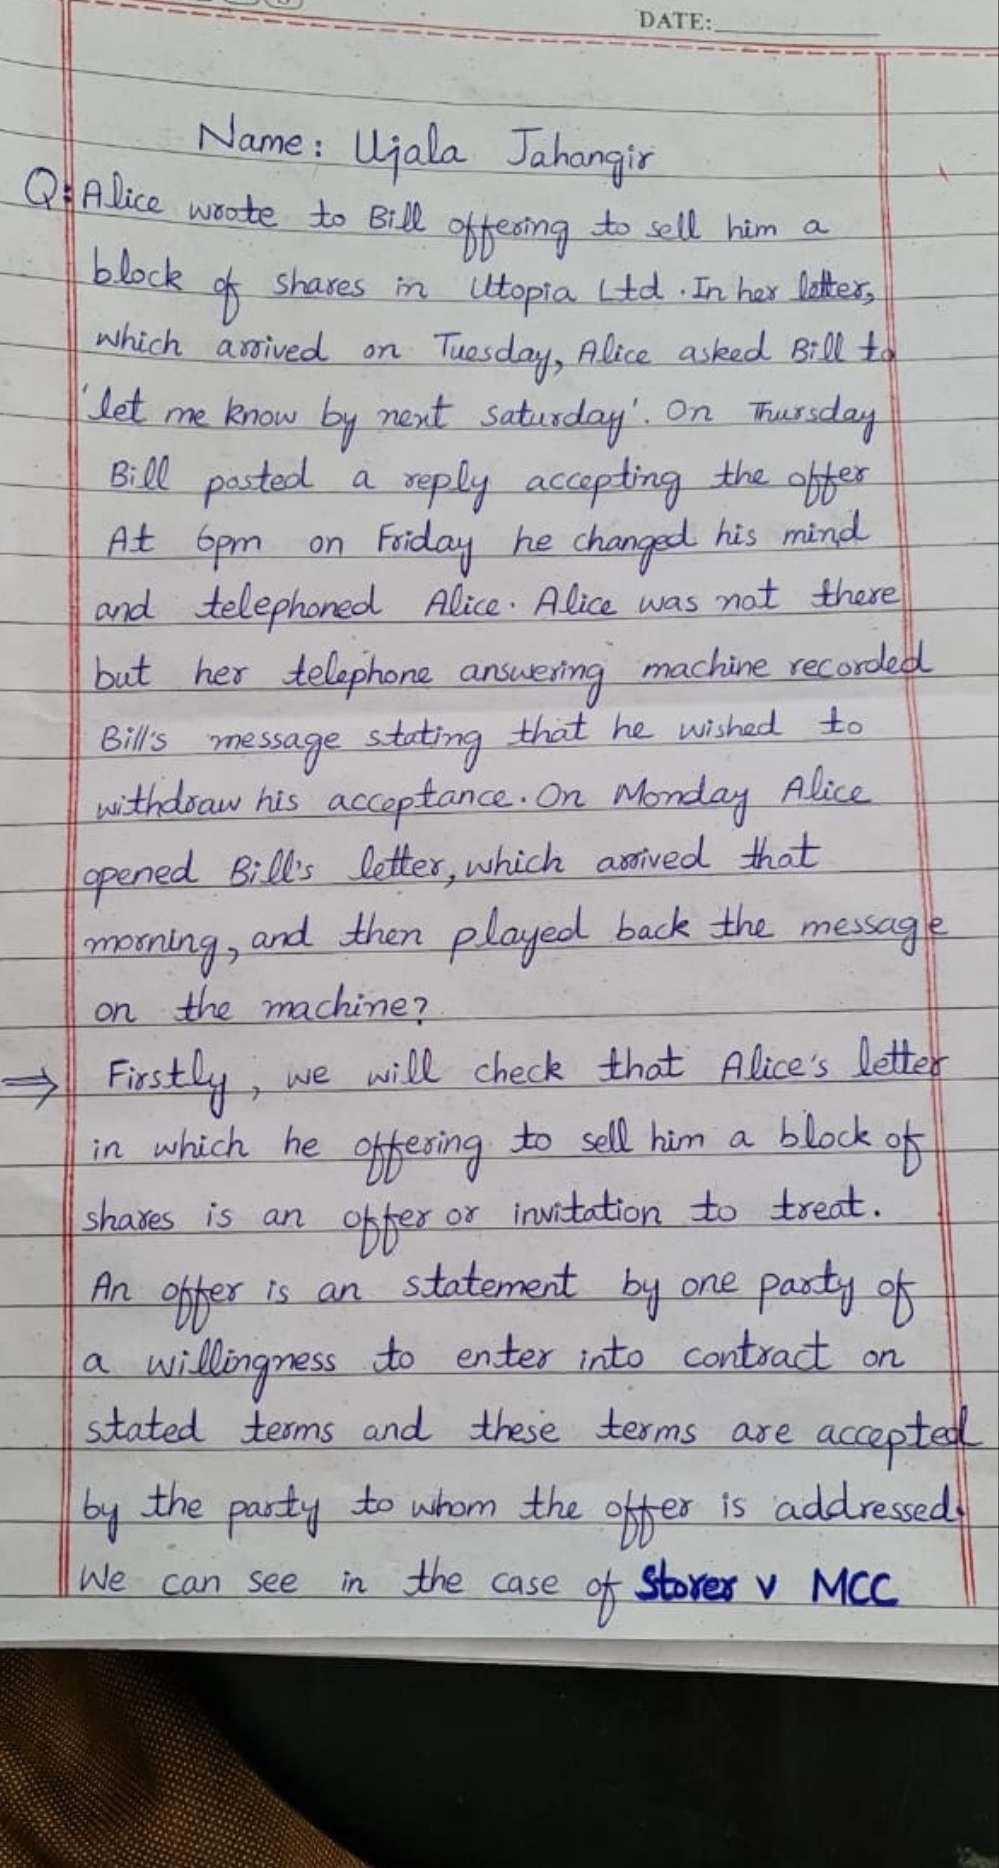 DATE:
Name: Ujala Jahangir
Q: Alice wrote to Bill offering to sell him a
block of shares in Utopia Ltd. In her letter,
which arrived on Tuesday, Alice asked Bill to
'let me know by next saturday'. On Thursday
Bill posted a reply accepting the offer
At 6pm on Friday he changed his mind
and telephoned Alice. Alice was not there
but her telephone answering machine recorded
Bill's message stating that he wished to
withdraw his acceptance. On Monday Alice
opened Bill's letter, which arrived that
morning, and then played back the message
on the machine?
⇒ Firstly, we will check that Alice's letter
in which he offering to sell him a block of
shares is an offer or invitation to treat.
An offer is an statement by one party of
a willingness to enter into contract on
stated terms and these terms are accepted
by the party to whom the offer is addressed.
We can see in the case of Storer v MCC